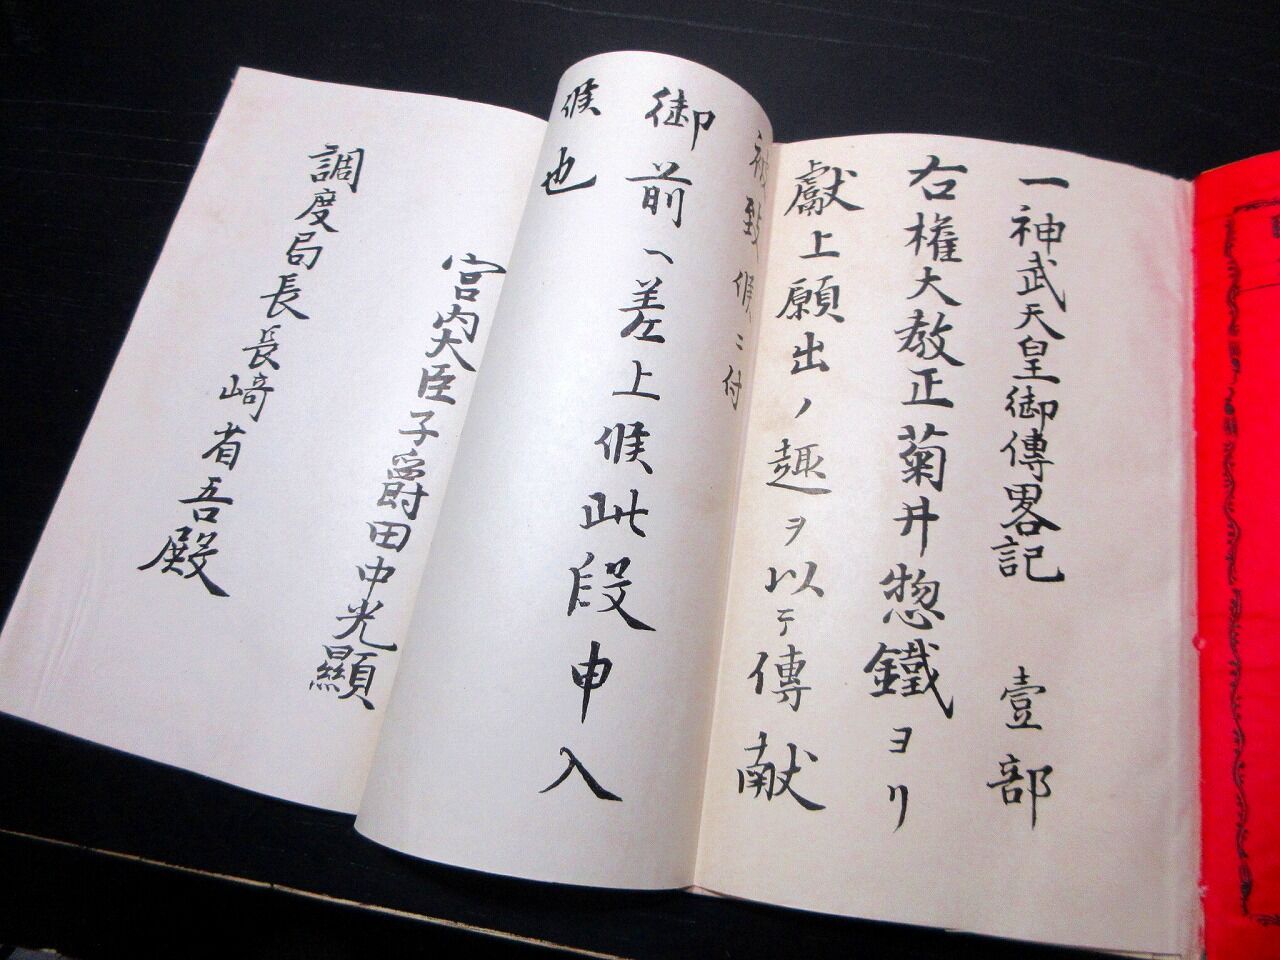 一神武天皇御傳畧記 壹部
右權大教正菊井惣鐵ヨリ
獻上願出ノ趣ヲ以テ傳献
被致候ニ付
御前ヘ差上候此段申入
候也
宮内大臣子爵田中光顯
調度局長長﨑省吾殿